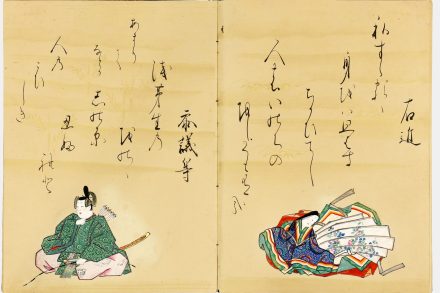 右近
わすらるゝ
身をば思はず
ちかひてし
人のいのちの
をしくもある哉
参議等
浅茅生の
をのゝ
しの原
忍ぶ
れど
あまり
て
などか
人の
恋
しき